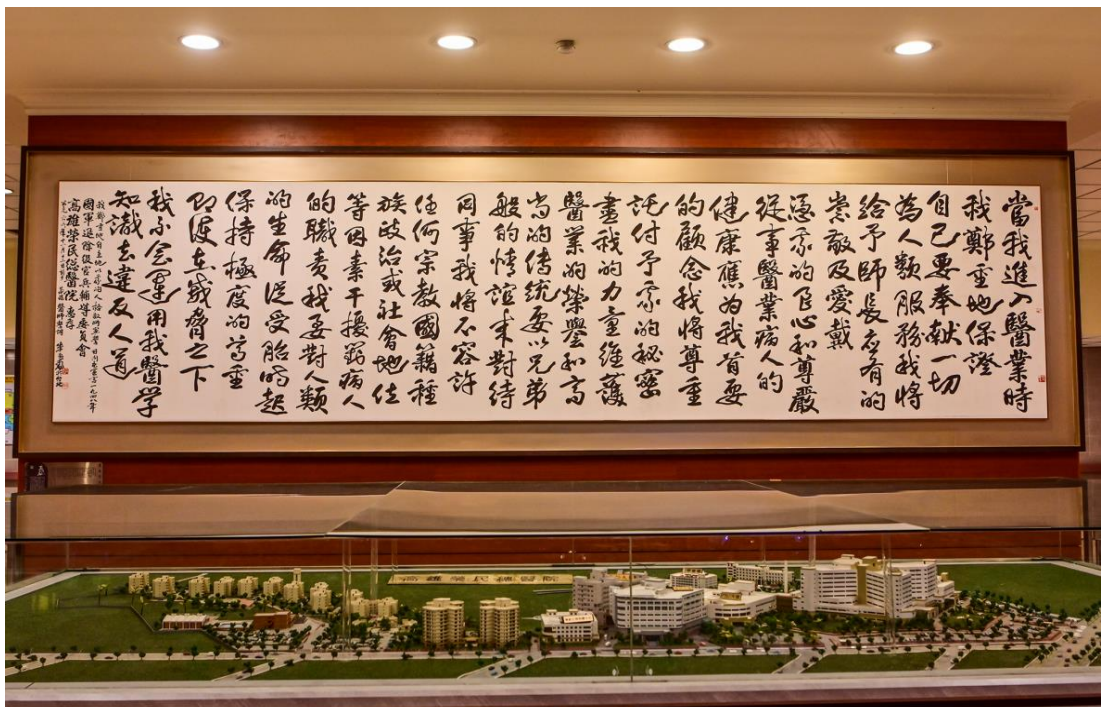 當我進入醫業時
我鄭重地保證
自己要奉献一切
為人類服務我將
給予師長應有的
崇敬及愛戴
憑我的良心和尊嚴
從事醫業病人的
健康應為我首要
的顧念我將尊重
託付予我的秘密
盡我的力量維護
醫業的榮譽和高
尚的傳統要以兄弟
般的情誼來對待
同事我將不容許
任何宗教國籍種
族政治或社會地位
等因素干擾對病人
的職責我要對人類
的生命從受胎時起
保持極度的尊重
即使在威脅之下
我不會運用我醫学
知識去違反人道
我鄭重地自主地以我的人格宣誓 日内瓦宣言一九四八年
國軍退除役官兵輔導委員會
高雄榮民總醫院惠存
高雄榮民總醫院